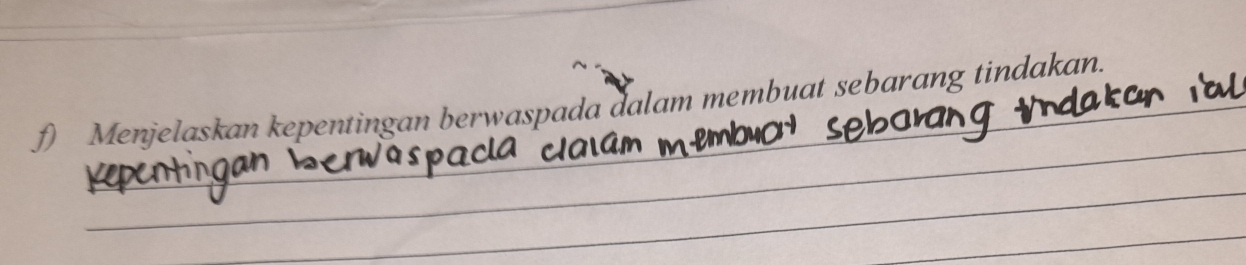 f) Menjelaskan kepentingan berwaspada dalam membuat sebarang tindakan.
kepentingan berwaspada dalam membuat sebarang tindakan